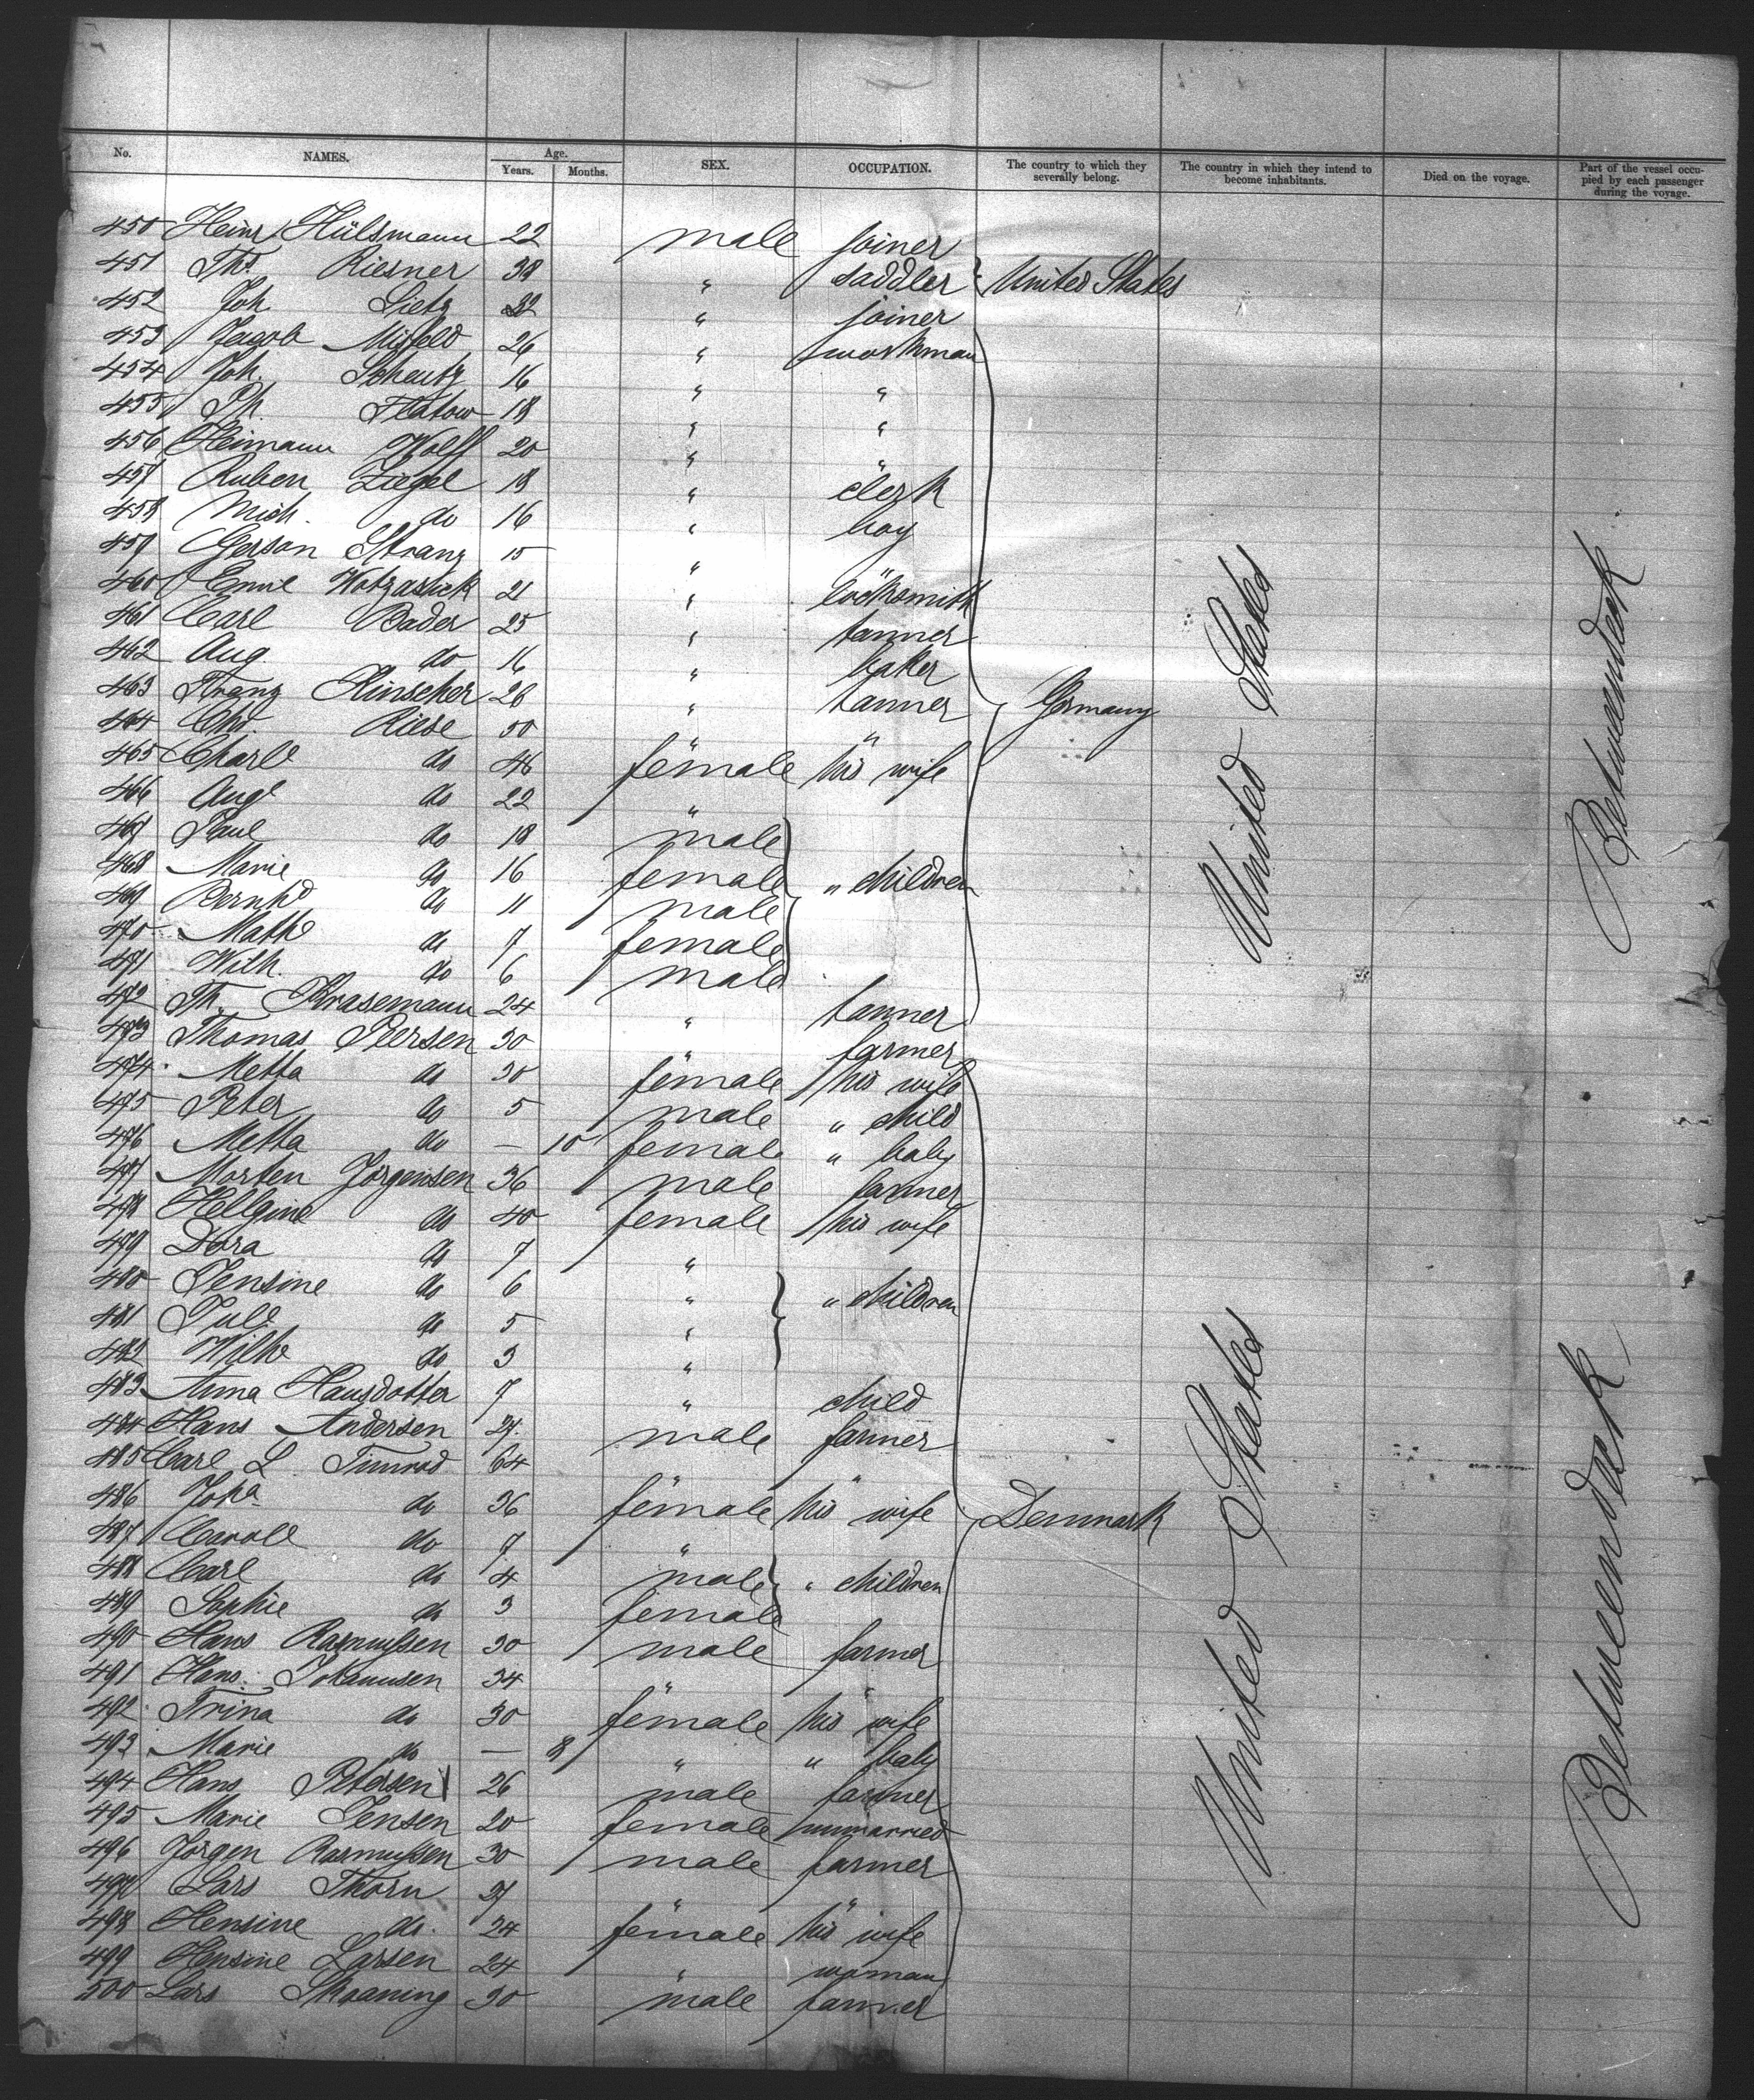 No. NAMES. Age. Years. Months. SEX. OCCUPATION. The country to which they severally belong. The country in which they intend to become inhabitants. Died on the voyage. Part of the vessel occupied by each passenger during the voyage.
450 Heinr Hülsmann 22 male joiner
451 Ths Riesner 38 " saddler } United States
452 Joh. Lietz 22 " joiner
453 Jacob Misfeld 26 " workman
454 Joh. Scheutz 16 " "
455 Ph. Flatow 18 " "
456 Heimann Wolff 20 " "
457 Ruben Ziegel 18 " clerk
458 Mich. do 16 " boy
459 Gerson Stranz 15 " "
460 Emil 21 " locksmith
461 Carl Bader 25 " tanner
462 Aug. do 16 " baker
463 Franz Hinscher 26 " tanner Germany
464 Chr. Riese 50 " "
465 Charle do 48 female his wife
466 Auge do 22 "
467 Paul do 18 male
468 Marie do 16 female " children
469 Bernhd do 11 male
470 Mathe do 7 female
471 Wilh. do 6 male
472 Th. Krasemann 24 " tanner
473 Thomas Peersen 30 " farmer
474 Metta do 30 female his wife
475 Peter do 5 male " child
476 Metta do — 10 female " baby
477 Morten Jorgensen 36 male farmer
478 Hellgine do 40 female his wife
479 Dora do 7 "
480 Jensine do 6 " " children
481 Jule do 5 "
482 Wilhe do 3 "
483 Anna Hansdotter 7 " child
484 Hans Andersen 27. male farmer
485 Carl L Timrod 64 " "
486 Joha do 36 female his wife Denmark
487 Carole do 7 "
488 Carl do 4 male " children
489 Sophie do 3 female
490 Hans Rasmussen 30 male farmer
491 Hans. Johannsen 34 " "
492 Trina do 30 female his wife
493 Marie do — 8 " " baby
494 Hans Petersen 26 male farmer
495 Marie Jensen 20 female unmarried
496 Jorgen Rasmussen 30 male farmer
497 Lars Thorn 27 " "
498 Hensine do. 24 female his wife
499 Hensine Larsen 24 " woman
500 Lars Skraaning 30 male farmer
United States
United States
Betweendeck
Betweendeck